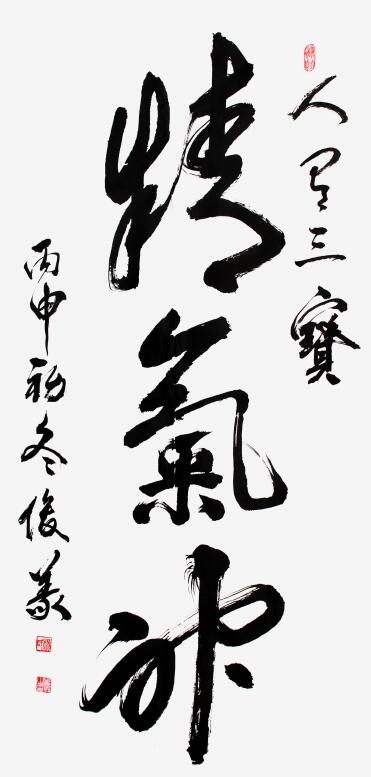 人三寶
精氣神
丙申初冬俊義